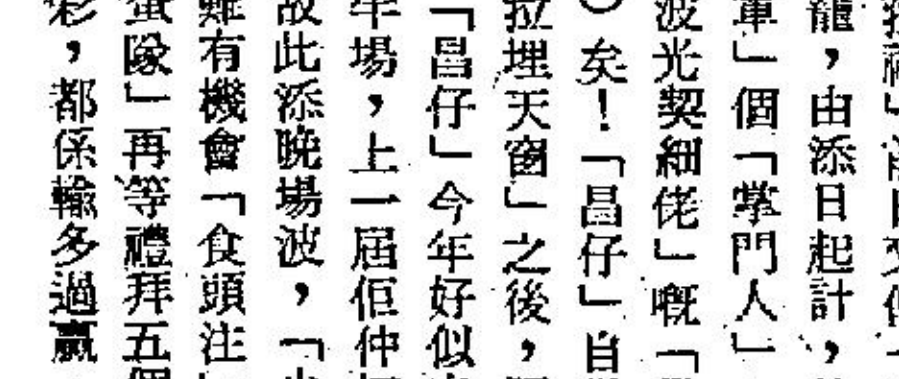 龍，由添日起計，
軍」個「掌門人」
波光契細佬」嘅「
矣！「昌仔」自
拉埋天窗」之後，
「昌仔」今年好似
年場，上一屆佢仲
故此添晚場波，「
難有機會「食頭注
隊」再等禮拜五個
彩，都係輸多過贏